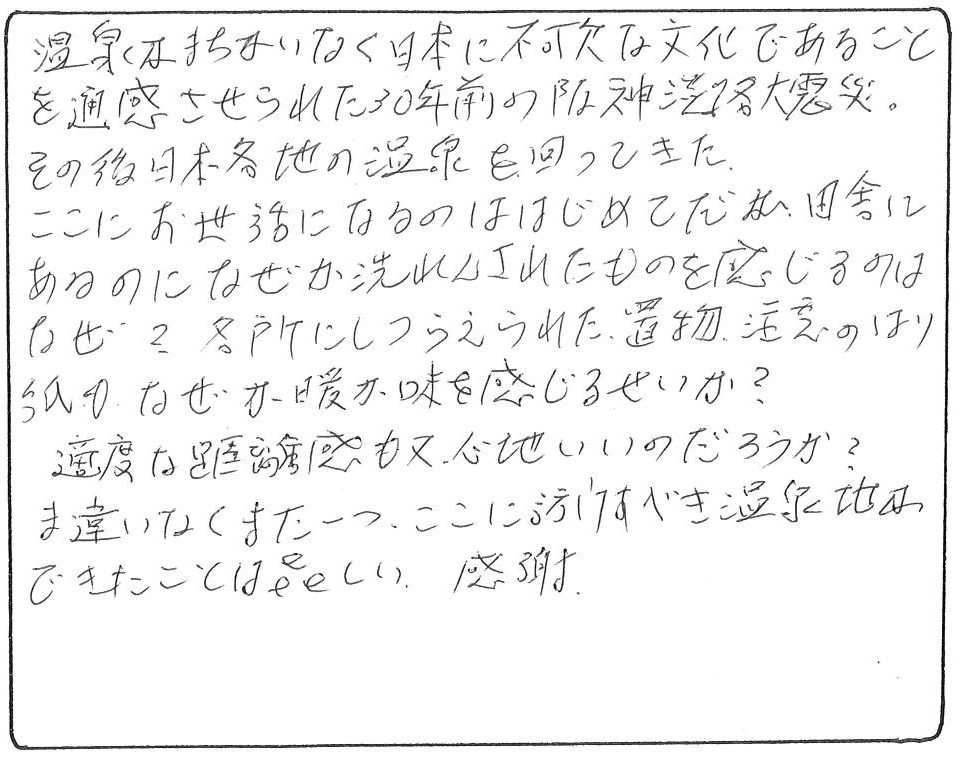 温泉はまちがいなく日本に不可欠な文化であること
を通感させられた30年前の阪神淡路大震災。
その後日本各地の温泉を回ってきた.
ここにお世話になるのははじめてだが、田舎に
あるのになぜか洗れんされたものを感じるのは
なぜ? 各所にしつらえられた、置物、注意のはり
紙も、なぜか暖か味を感じるせいか?
適度な距離感も又、心地いいのだろうか?
ま違いなくまた一つ、ここに訪けすべき温泉地が
できたことは しい. 感謝.